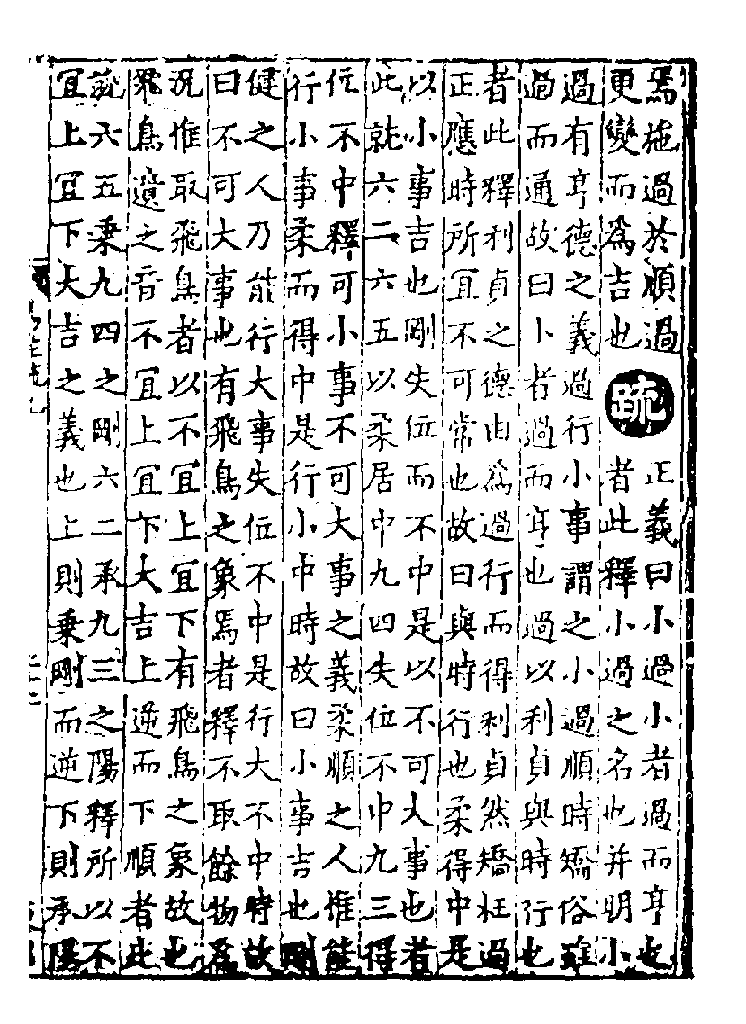 焉施過於順過
更變而為吉也
疏
正義曰小過小者過而亨也
者此釋小過之名也并明小
過有亨德之義過行小事謂之小過順時矯俗雖
過而通故曰小者過而亨也過以利貞與時行也
者此釋利貞之德由為過行而得利貞然矯枉過
正應時所宜不可常也故曰與時行也柔得中是
以小事吉也剛失位而不中是以不可大事也者
此就六二六五以柔居中九四失位不中九三得
位不中釋可小事不可大事之義柔順之人惟能
行小事柔而得中是行小中時故曰小事吉也剛
健之人乃能行大事失位不中是行大不中時故
曰不可大事也有飛鳥之象焉者釋不取餘物為
況惟取飛鳥者以不宜上宜下有飛鳥之象故也
飛鳥遺之音不宜上宜下大吉上逆而下順者此
就六五乘九四之剛六二承九三之陽釋所以不
宜上宜下大吉之義也上則乘剛而逆下則承陽